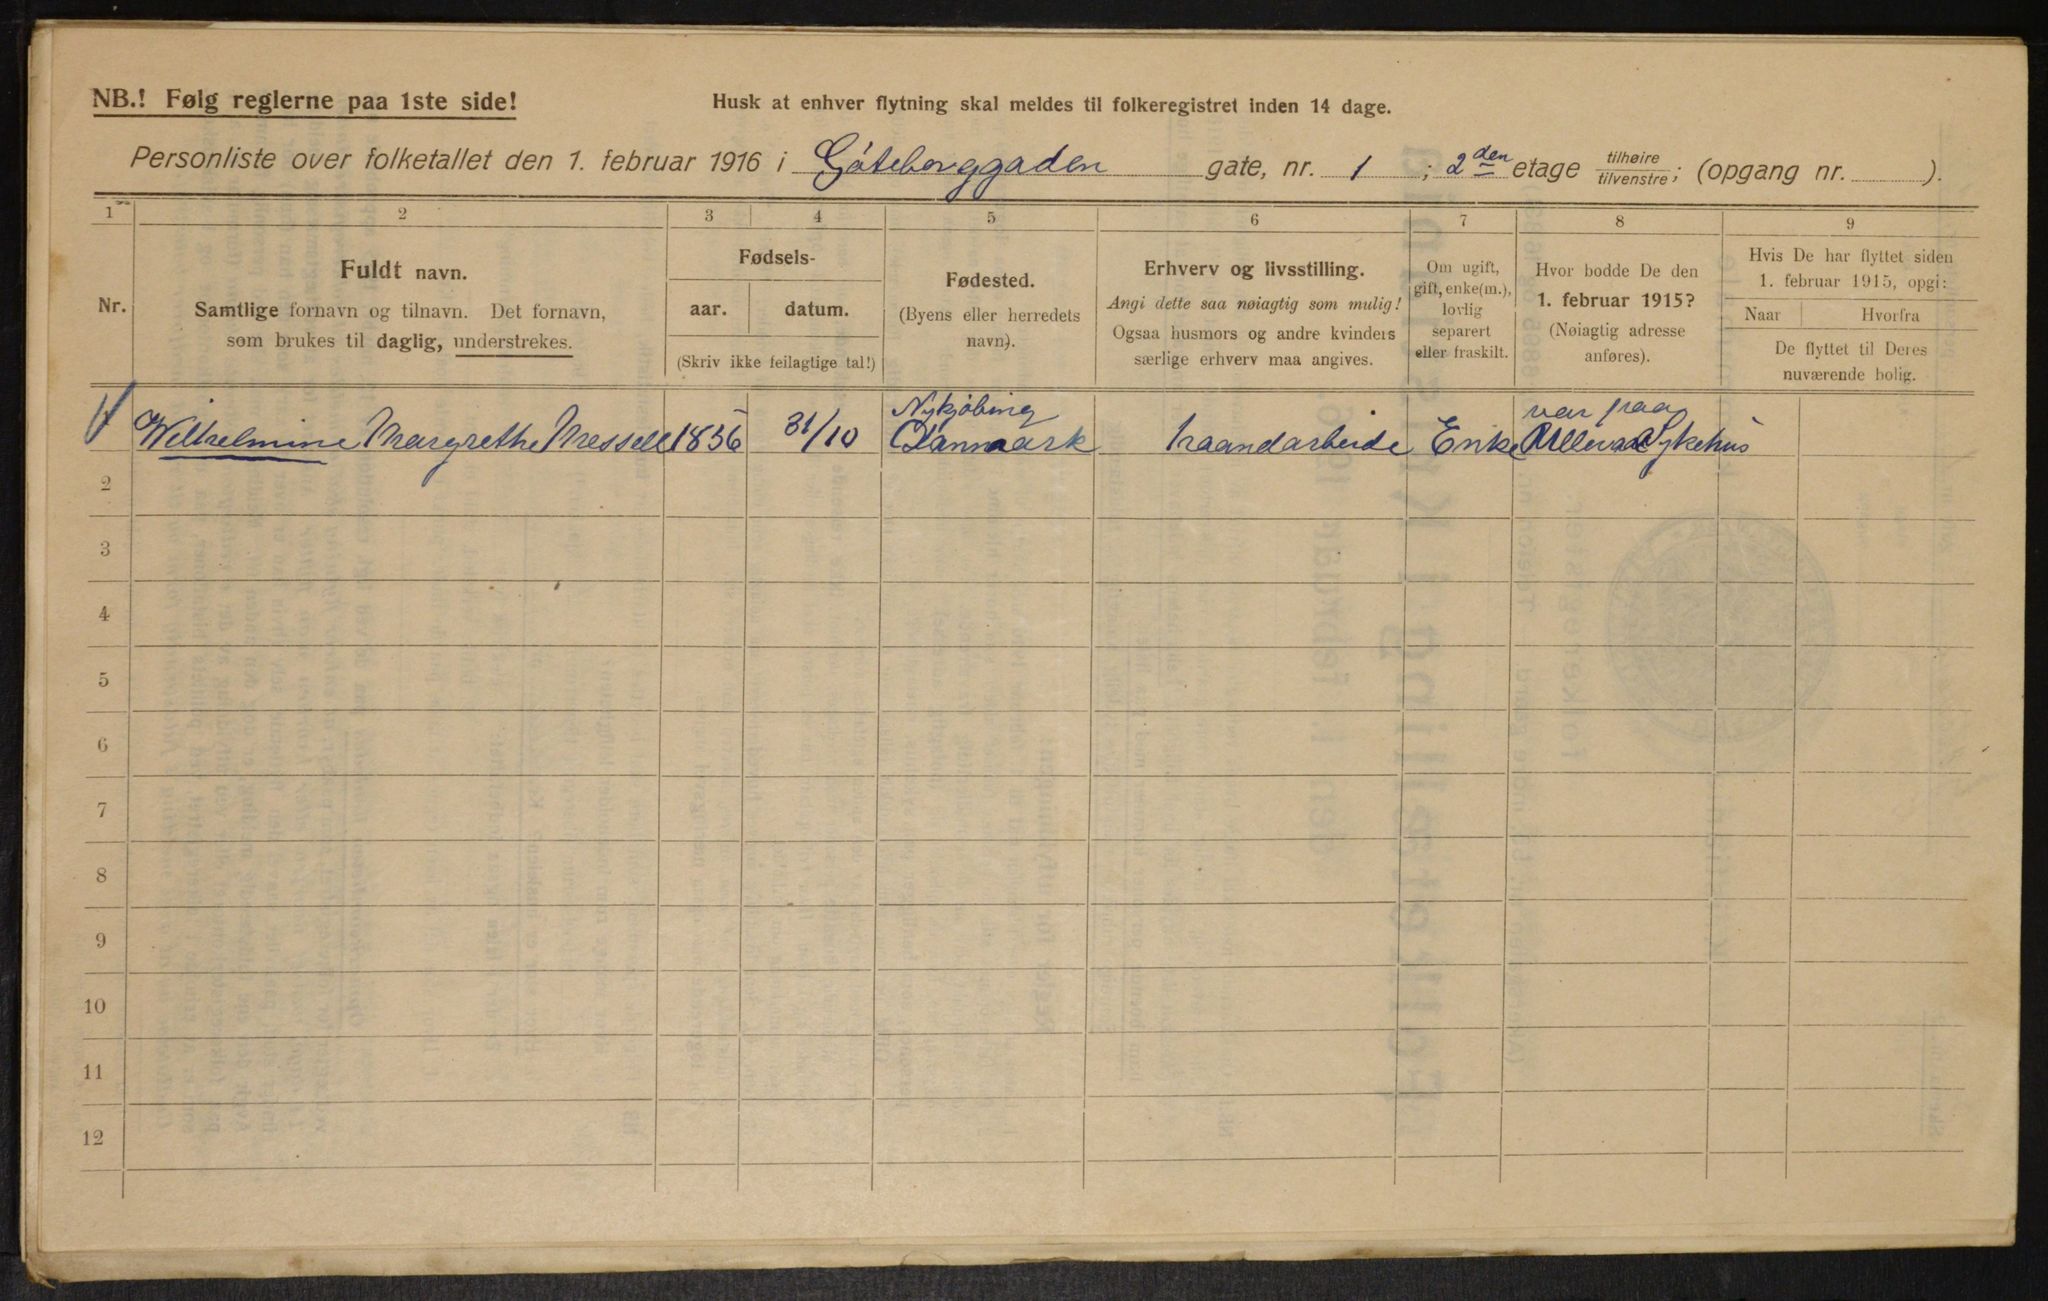 NB.! Følg reglerne paa 1ste side!
Husk at enhver flytning skal meldes til folkeregistret inden 14 dage.
Personliste over folketallet den 1. februar 1916 i Göteborggaden gate, nr. 1 ; 2den etage tilhøire tilvenstre; (opgang nr. ).
1 2 3 4 5 6 7 8 9
Nr.
Fuldt navn.
Samtlige fornavn og tilnavn. Det fornavn,
som brukes til daglig, understrekes.
Fødsels-
aar. datum.
(Skriv ikke feilagtige tal!)
Fødested.
(Byens eller herredets
navn).
Erhverv og livsstilling.
Angi dette saa nøiagtig som mulig!
Ogsaa husmors og andre kvinders
særlige erhverv maa angives.
Om ugift,
gift, enke(m.),
lovlig
separert
eller fraskilt.
Hvor bodde De den
1. februar 1915?
(Nøiagtig adresse
anføres).
Hvis De har flyttet siden
1. februar 1915, opgi:
Naar Hvorfra
De flyttet til Deres
nuværende bolig.
Nykjöbing var paa
1 Wilhelmine Margrethe Messell 1856 31/10 Danmark haandarbeide Enke Ullevaal Sykehus
2
3
4
5
6
7
8
9
10
11
12